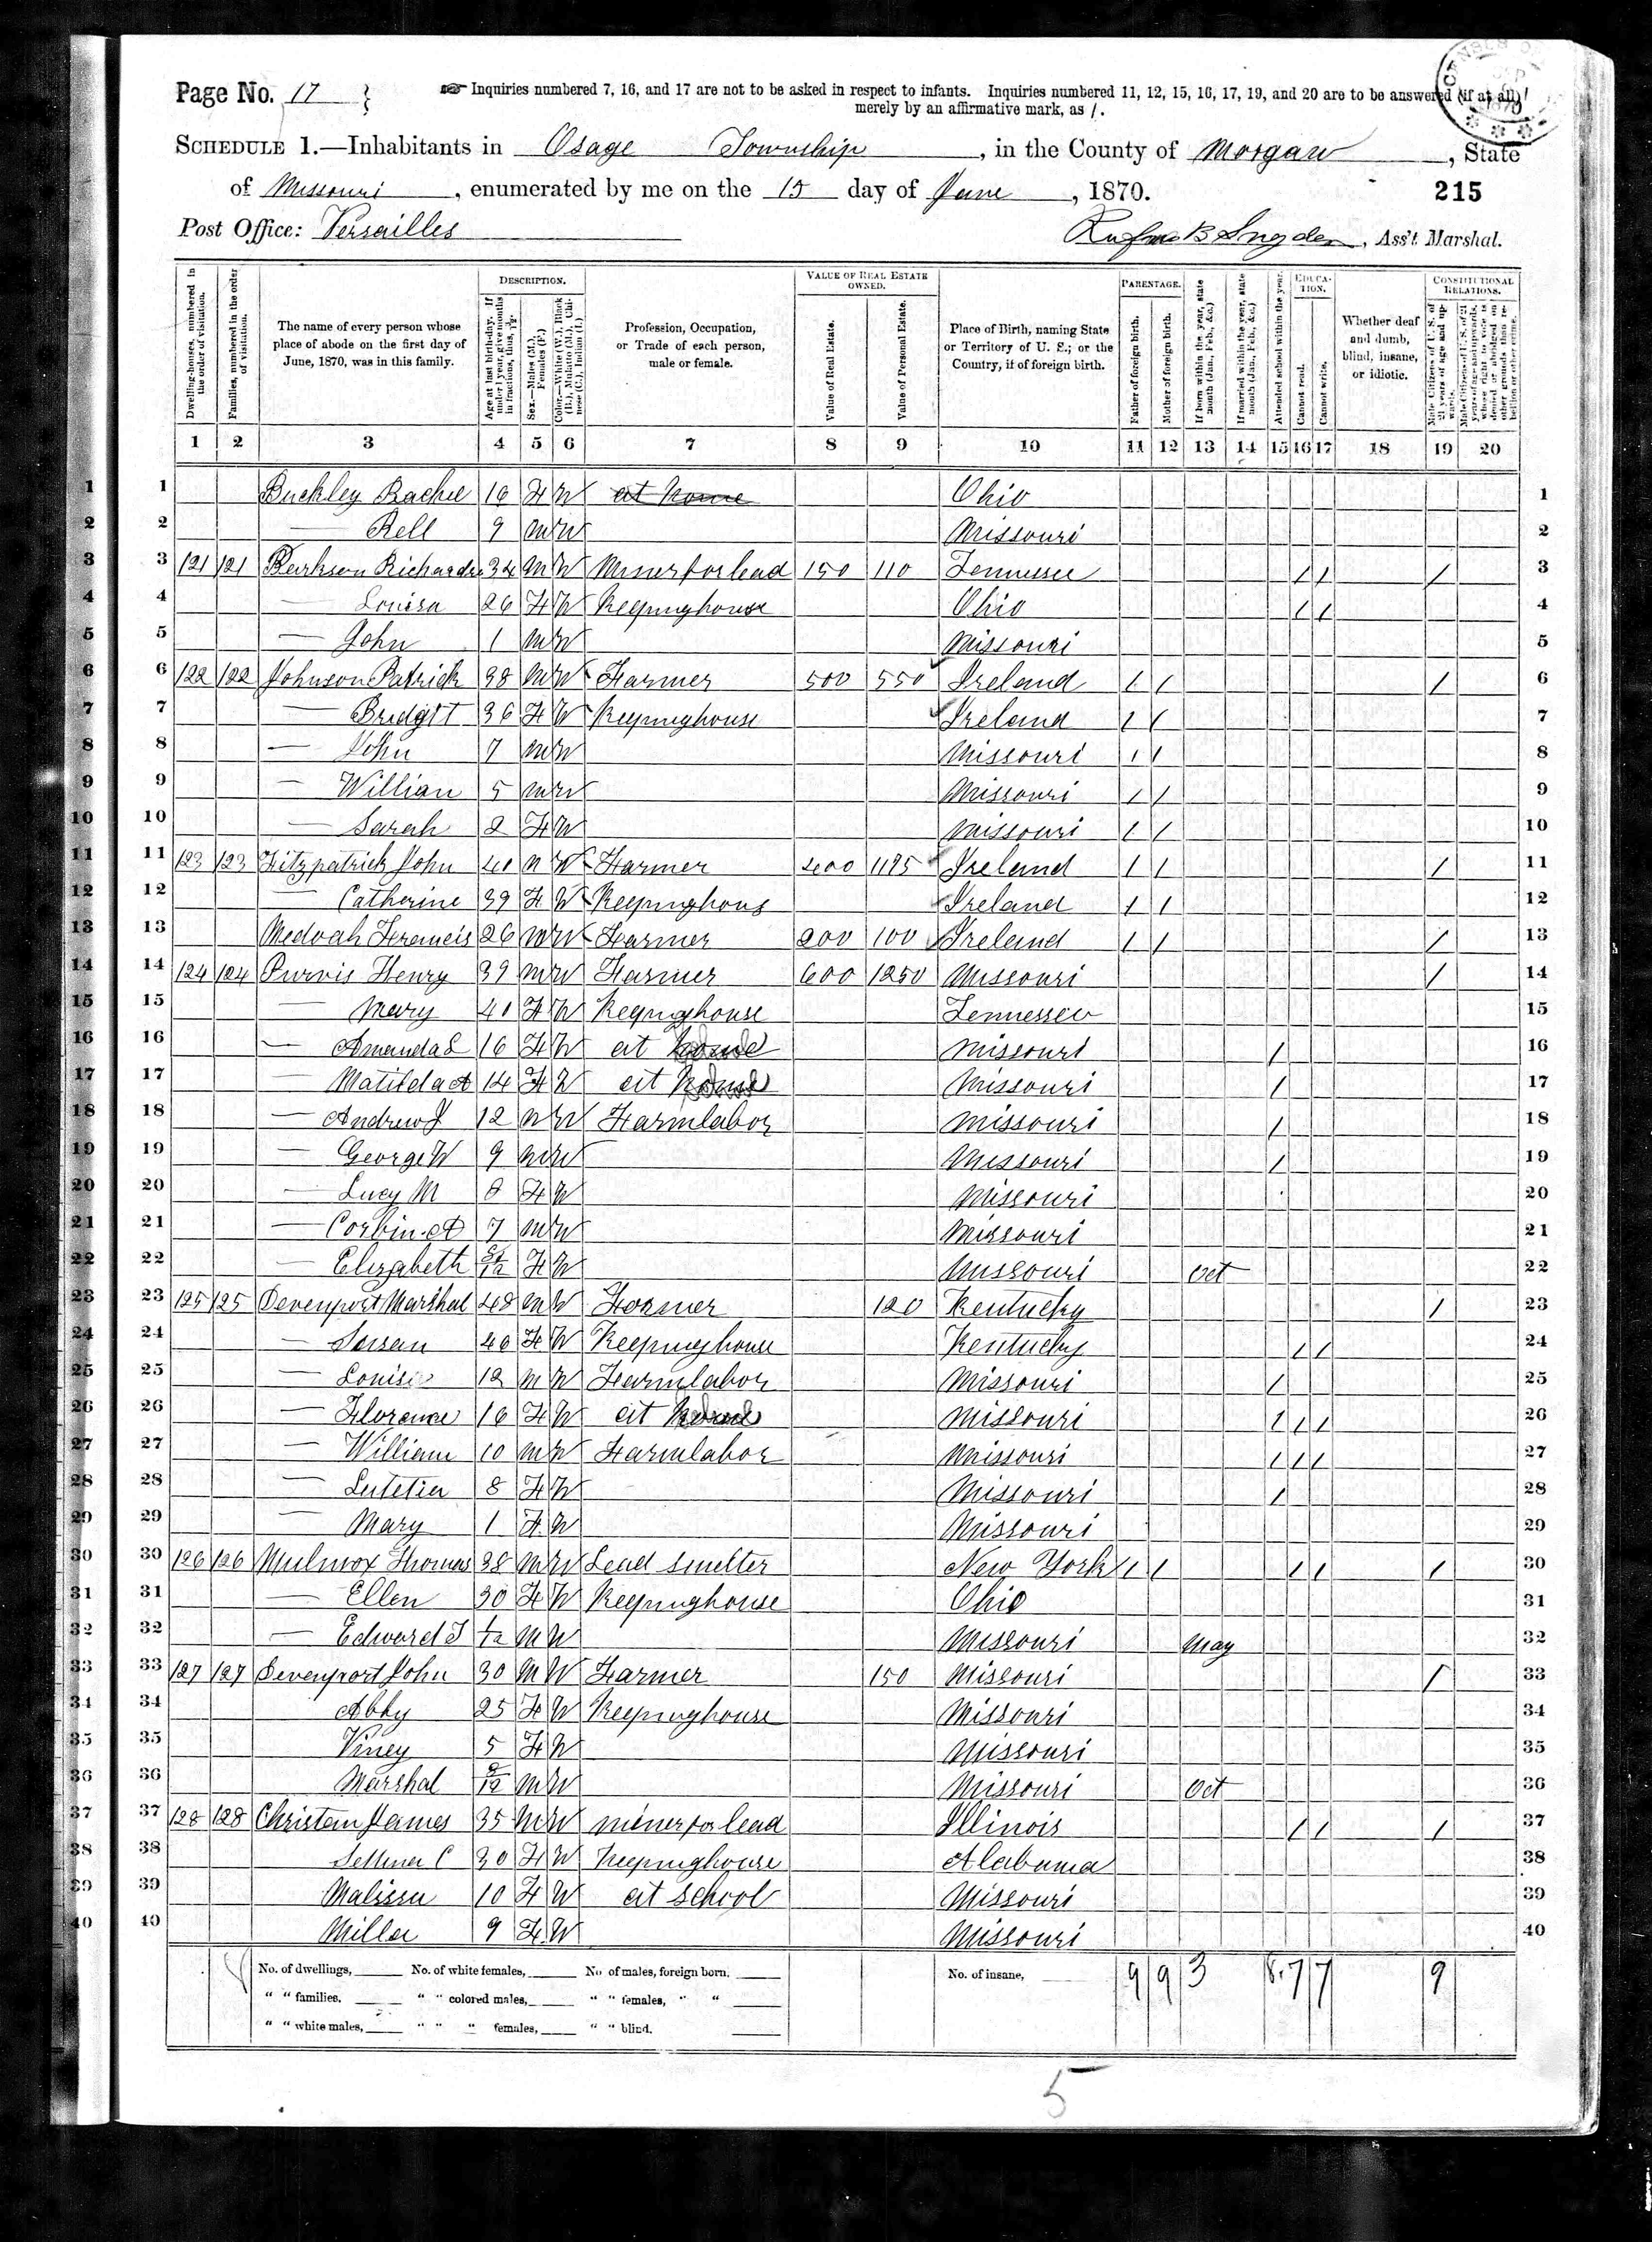 Page No. 17
Inquiries numbered 7, 16, and 17 are not to be asked in respect to infants. Inquiries numbered 11, 12, 15, 16, 17, 19, and 20 are to be answered (if at all)
merely by an affirmative mark, as /.
SCHEDULE 1.—Inhabitants in Osage Township, in the County of Morgan, State
of Missouri, enumerated by me on the 15 day of June, 1870.
215
Post Office: Versailles
Rufus B Sugden, Ass't Marshal.
Dwelling-houses, numbered in the order of visitation.
Families, numbered in the order of visitation.
The name of every person whose place of abode on the first day of June, 1870, was in this family.
DESCRIPTION.
Age at last birth-day. If under 1 year, give months in fractions, thus, 3/12
Sex.—Males (M.), Females (F.)
Color.—White (W.), Black (B.), Mulatto (M.), Chinese (C.), Indian (I.)
Profession, Occupation, or Trade of each person, male or female.
VALUE OF REAL ESTATE OWNED.
Value of Real Estate.
Value of Personal Estate.
Place of Birth, naming State or Territory of U. S.; or the Country, if of foreign birth.
PARENTAGE.
Father of foreign birth.
Mother of foreign birth.
If born within the year, state month (Jan., Feb., &c.)
If married within the year, state month (Jan., Feb., &c.)
Attended school within the year.
EDUCATION.
Cannot read.
Cannot write.
Whether deaf and dumb, blind, insane, or idiotic.
CONSTITUTIONAL RELATIONS.
Male Citizens of U. S. of 21 years of age and upwards.
Male Citizens of U. S. of 21 years of age and upwards, whose right to vote is denied or abridged on other grounds than rebellion or other crime.
1 2 3 4 5 6 7 8 9 10 11 12 13 14 15 16 17 18 19 20
1 1 Buckley Rachel 16 F W at home Ohio 1
2 2 — Rell 9 M W Missouri 2
3 3 121 121 Richardson 34 M W Miner for lead 150 110 Tennessee / / / 3
4 4 — Louisa 26 F W Keeping house Ohio / / 4
5 5 — John 1 M W Missouri 5
6 6 122 122 Johnson Patrick 38 M W Farmer 500 550 Ireland / / / 6
7 7 — Bridgit 36 F W Keeping house Ireland / / 7
8 8 — John 7 M W Missouri / / 8
9 9 — Willian 5 M W Missouri / / 9
10 10 — Sarah 2 F W Missouri / / 10
11 11 123 123 Fitzpatrick John 40 M W Farmer 400 1195 Ireland / / / 11
12 12 — Catherine 39 F W Keeping hous Ireland / / 12
13 13 Medvah Francis 26 M W Farmer 200 100 Ireland / / / 13
14 14 124 124 Purvis Henry 39 M W Farmer 600 1250 Missouri / 14
15 15 — Mary 40 F W Keeping house Tennessee 15
16 16 — Amanda L 16 F W at home Missouri / 16
17 17 — Matilda A 14 F W at home Missouri / 17
18 18 — Andrew J 12 M W Farm labor Missouri / 18
19 19 — George W 9 M W Missouri / 19
20 20 — Lucy M 8 F W Missouri 20
21 21 — Corbin A 7 M W Missouri 21
22 22 — Elizabeth 8/12 F W Missouri Oct 22
23 23 125 125 Devenport Marshal 48 M W Farmer 120 Kentucky / 23
24 24 — Sussan 46 F W Keeping house Kentucky / / 24
25 25 — Louis 12 M W Farm labor Missouri / 25
26 26 — Florence 16 F W at home Missouri / / / 26
27 27 — William 10 M W Farm labor Missouri / / / 27
28 28 — Lutetia 8 F W Missouri / 28
29 29 — Mary 1 F W Missouri 29
30 30 126 126 Mulnox Thomas 38 M W Lead smelter New York / / / / / 30
31 31 — Ellen 30 F W Keeping house Ohio 31
32 32 — Edward T 1/12 M W Missouri May 32
33 33 127 127 Devenport John 30 M W Farmer 150 Missouri / 33
34 34 Abby 25 F W Keeping house Missouri 34
35 35 Viney 5 F W Missouri 35
36 36 Marshal 8/12 M W Missouri Oct 36
37 37 128 128 Christan James 35 M W miner for lead Illinois / / / 37
38 38 C 30 F W Keeping house Alabama 38
39 39 Malissa 10 F W at school Missouri 39
40 40 Milla 9 F W Missouri 40
No. of dwellings, No. of white females, No. of males, foreign born. No. of insane, 9 9 3 8 7 7 9
" " families. " " colored males, " " females, " "
" " white males, " " " females, " " blind.
5